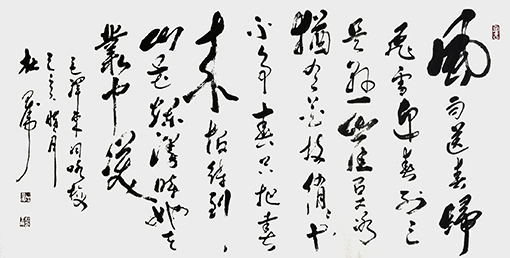 風雨送春歸
飛雪迎春到已
是懸崖百丈冰
猶有花枝俏俏也
不爭春只把春
來報待到
山花爛漫時她在
叢中笑
毛澤東詞咏梅
己亥腊月
杜